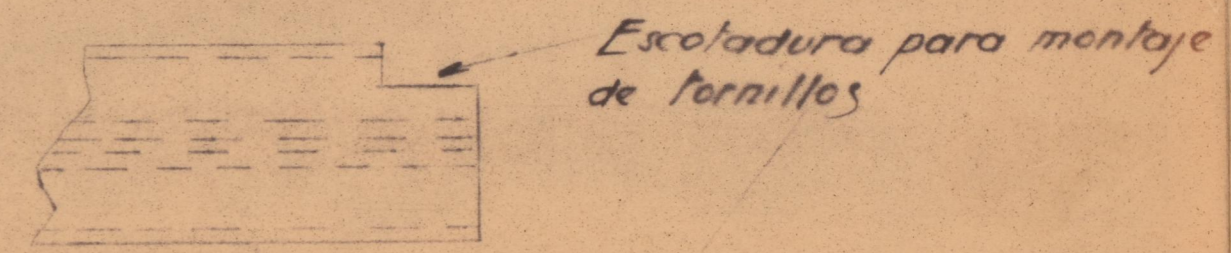 Escotadura para montaje
de tornillos